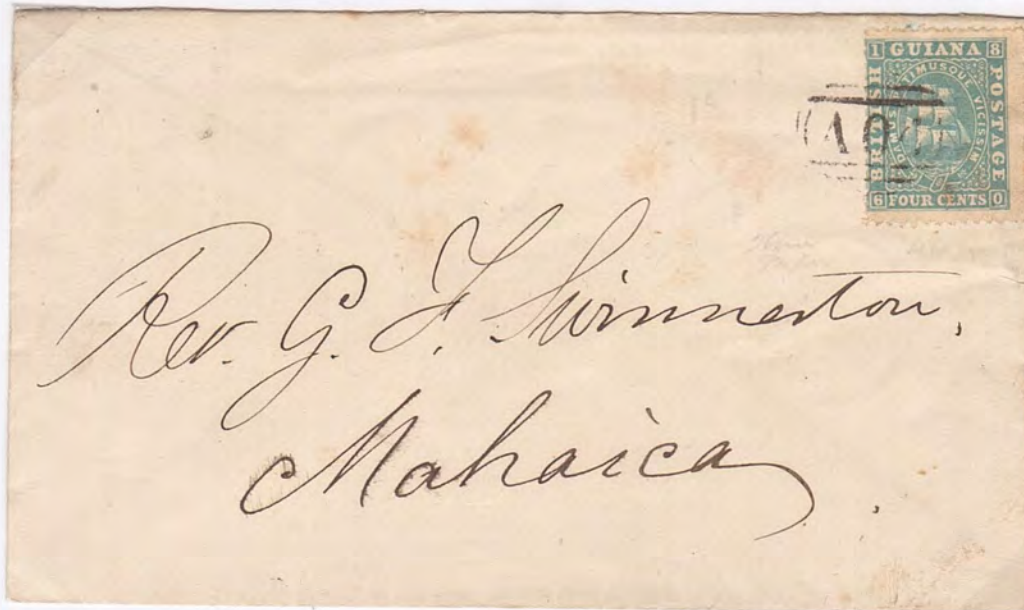 1 GUIANA 8
BRITISH
POSTAGE
DAMUS PETIMUSQUE VICISSIM
6 FOUR CENTS 0
A04
Rev. G. F. Swinnerton,
Mahaica.